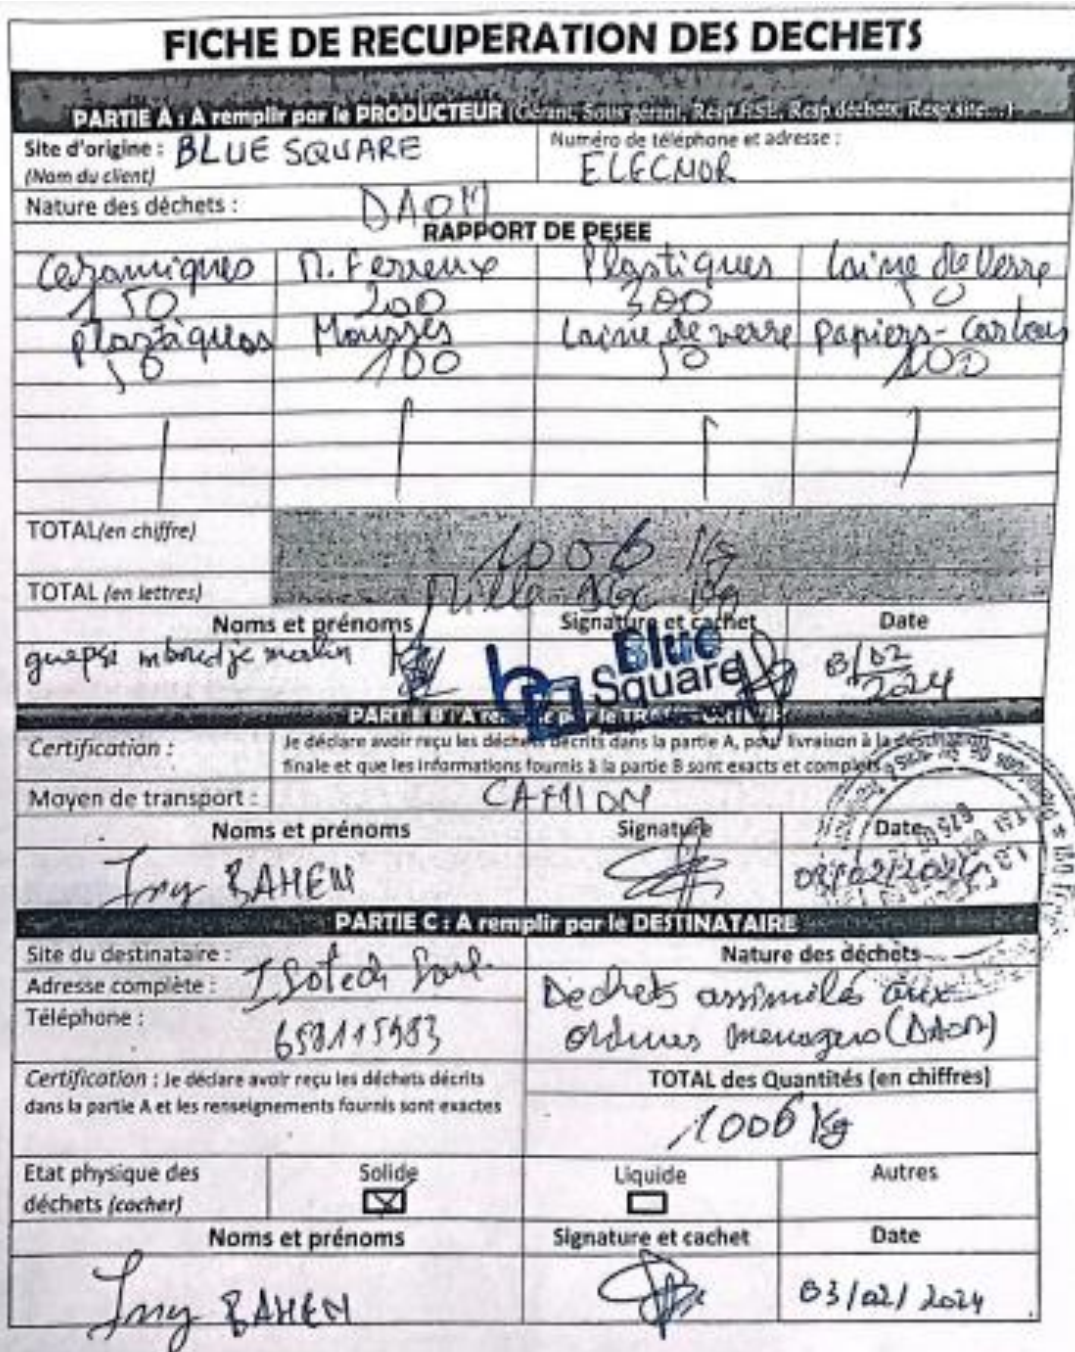 FICHE DE RECUPERATION DES DECHETS
PARTIE A : A remplir par le PRODUCTEUR (Gérant, Sous gérant, Resp.HSE, Resp.déchets, Resp.site...)
Site d'origine : BLUE SQUARE
(Nom du client)
Numéro de téléphone et adresse :
ELECNOR
Nature des déchets : DAOM
RAPPORT DE PESEE
Ceramiques M. Ferreux Plastiques Laine de Verre
150 200 300 50
plastiques Mousses Laine de verre Papiers-Cartons
50 100 50 100
TOTAL(en chiffre)
1006 Kg
TOTAL (en lettres)
Mille six kg
Noms et prénoms Signature et cachet Date
guepsi mboudje merlin
Blue
Square
/02
2024
PARTIE B : A par le
Certification :
Je déclare avoir reçu les déchets décrits dans la partie A, pour livraison à la destination
finale et que les informations fournis à la partie B sont exacts et complets
Moyen de transport : CAMION
Noms et prénoms Signature Date
Ing BAHEN /02/2024
PARTIE C : A remplir par le DESTINATAIRE
Site du destinataire :
Isotech Sarl.
Adresse complète :
Téléphone :
658115983
Nature des déchets
Dechets assimilés aux
ordures menagers (DAOM)
Certification : Je déclare avoir reçu les déchets décrits
dans la partie A et les renseignements fournis sont exactes
TOTAL des Quantités (en chiffres)
1006 Kg
Etat physique des
déchets (cocher)
Solide
Liquide
Autres
Noms et prénoms Signature et cachet Date
Ing BAHEN 03/02/2024